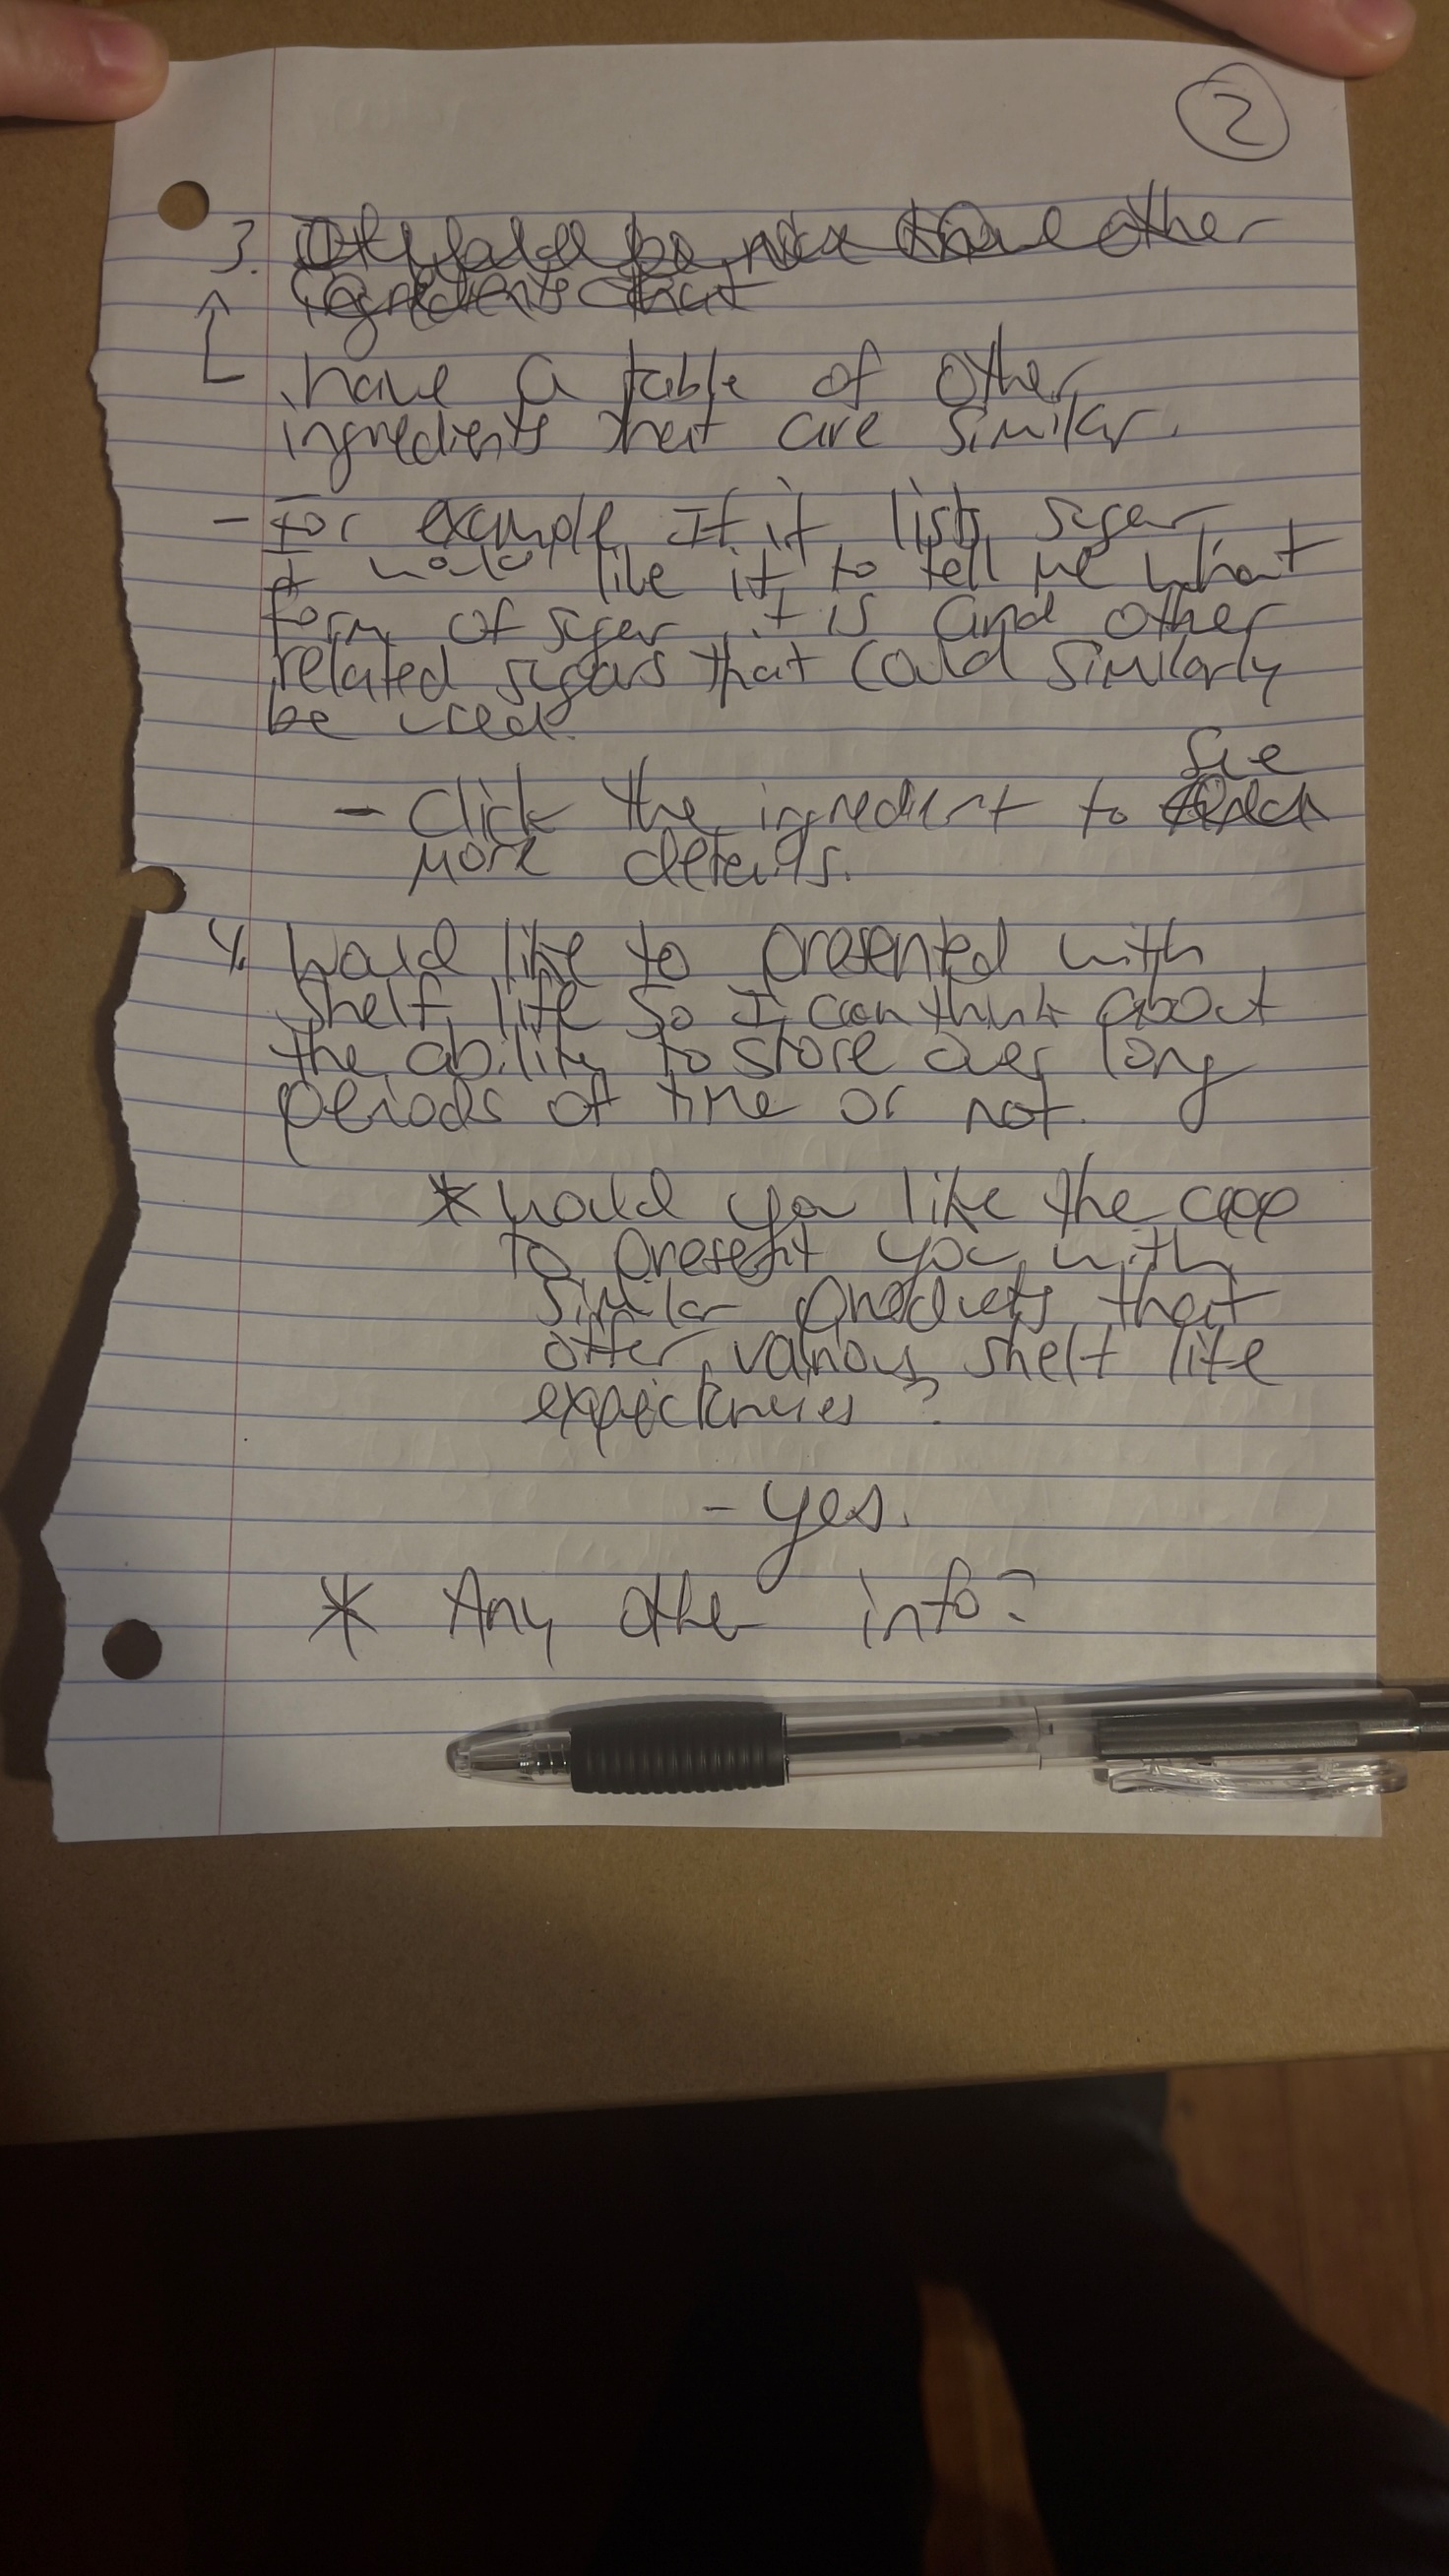 2
3. It would be nice to have other
ingredients that
have a table of other
ingredients that are similar.
- For example If it lists sugar
I would like it to tell me what
form of sugar it is and other
related sugars that could similarly
be used.
see
- Click the ingredient to
more details.
4. Would like to presented with
shelf life so I can think about
the ability to store over long
periods of time or not.
* Would you like the app
to present you with
similar products that
offer various shelf life
expectancies?
- yes.
* Any other info?